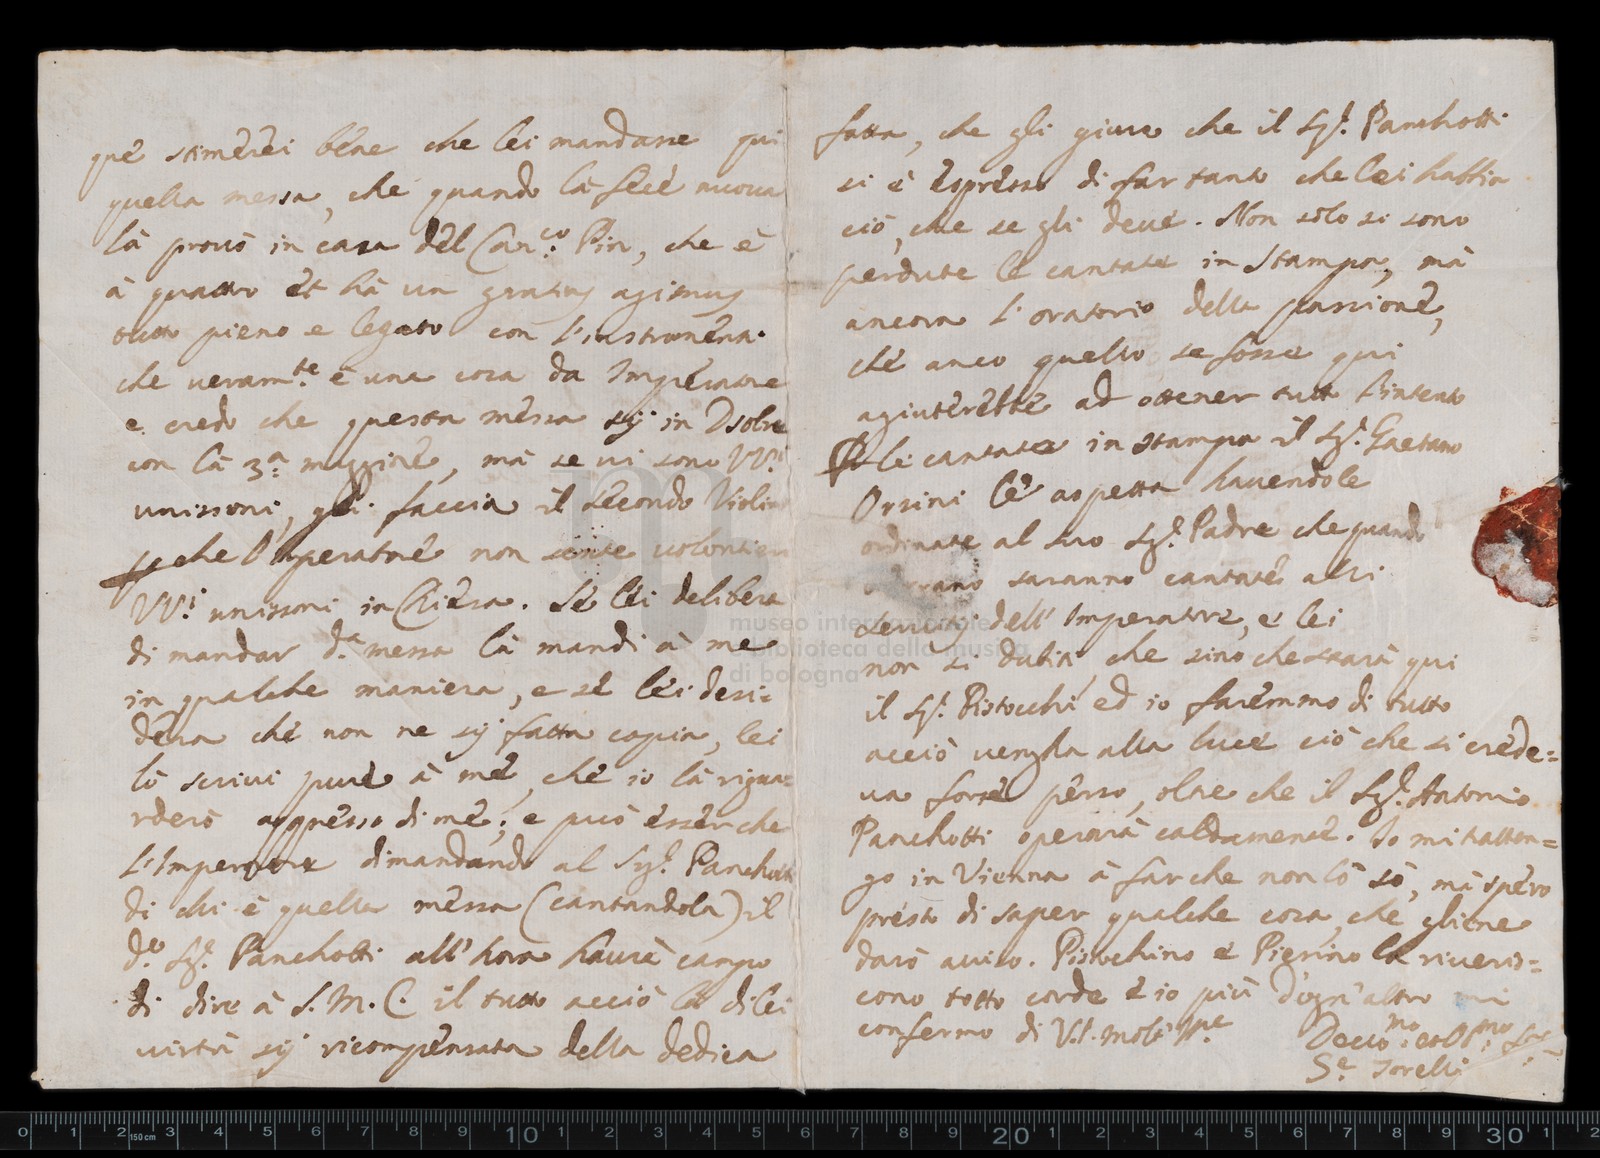 què stimerei bene che lei mandasse qui
quella messa, che quando là fece nuova
là provò in casa del Can.co Pin, che è
à quattro et hà un gratias agimus
tutto pieno e legato con l'instromenti
che veram.te è una cosa da Imperatore
e credo che questa messa sij in Dsolre
con là 3.a maggiore, mà se vi sono VV.i
unissoni, gli faccia il secondo Violino
che l'Imperatore non sente volontieri
VV.i unissoni in Chiesa. Se lei delibera
di mandar d.a messa là mandi à me
in qualche maniera, e se lei desi=
dera che non ne sij fatta copia, lei
lo scrivi pure à me, che io là rigua=
rderò appresso di me; e può esser che
l'Imperatore dimandando al Sig.r Panchotti
di chi è quella messa (cantandola) il
d.o Sig.r Panchotti all'hora haurà campo
di dire à S. M. C. il tutto acciò la di lei
virtà sij ricompensata della dedica
fatta, che gli giuro che il Sig.r Panchotti
si è espresso di far tanto che lei habbia
ciò, che se gli deve. Non solo si sono
perdute le cantate in stampa, mà
ancora l'oratorio della passione,
che anco quello se fosse qui
agiuterebbe ad ottener tutto l'intento
le cantate in stampa il Sig.r Gaetano
Orsini le aspetta havendole
ordinate al suo Sig.r Padre che quando
saranno cantate alli
servitij dell'Imperatore, e lei
non si dubiti, che sino che starà qui
il Sig.r Pistocchi ed io faremmo di tutto
acciò vengha alla luce ciò che si crede=
va forse perso, oltre che il Sig.r Antonio
Panchotti operarà caldamente. Io mi tratten=
go in Vienna à far che non lo sò, mà spero
presto di saper qualche cosa, che gliene
darò aviso. Pistochino e Pierino la riveris=
cono totto corde e io più d'ogn'altro mi
confermo di V.S. Molt'Ill.e
Devo.mo et Ob.mo Ser.
Torelli
museo internazionale
e biblioteca della musica
di bologna
0 1 2 3 4 5 6 7 8 9 10 1 2 3 4 5 6 7 8 9 20 1 2 3 4 5 6 7 8 9 30 1 2
150 cm